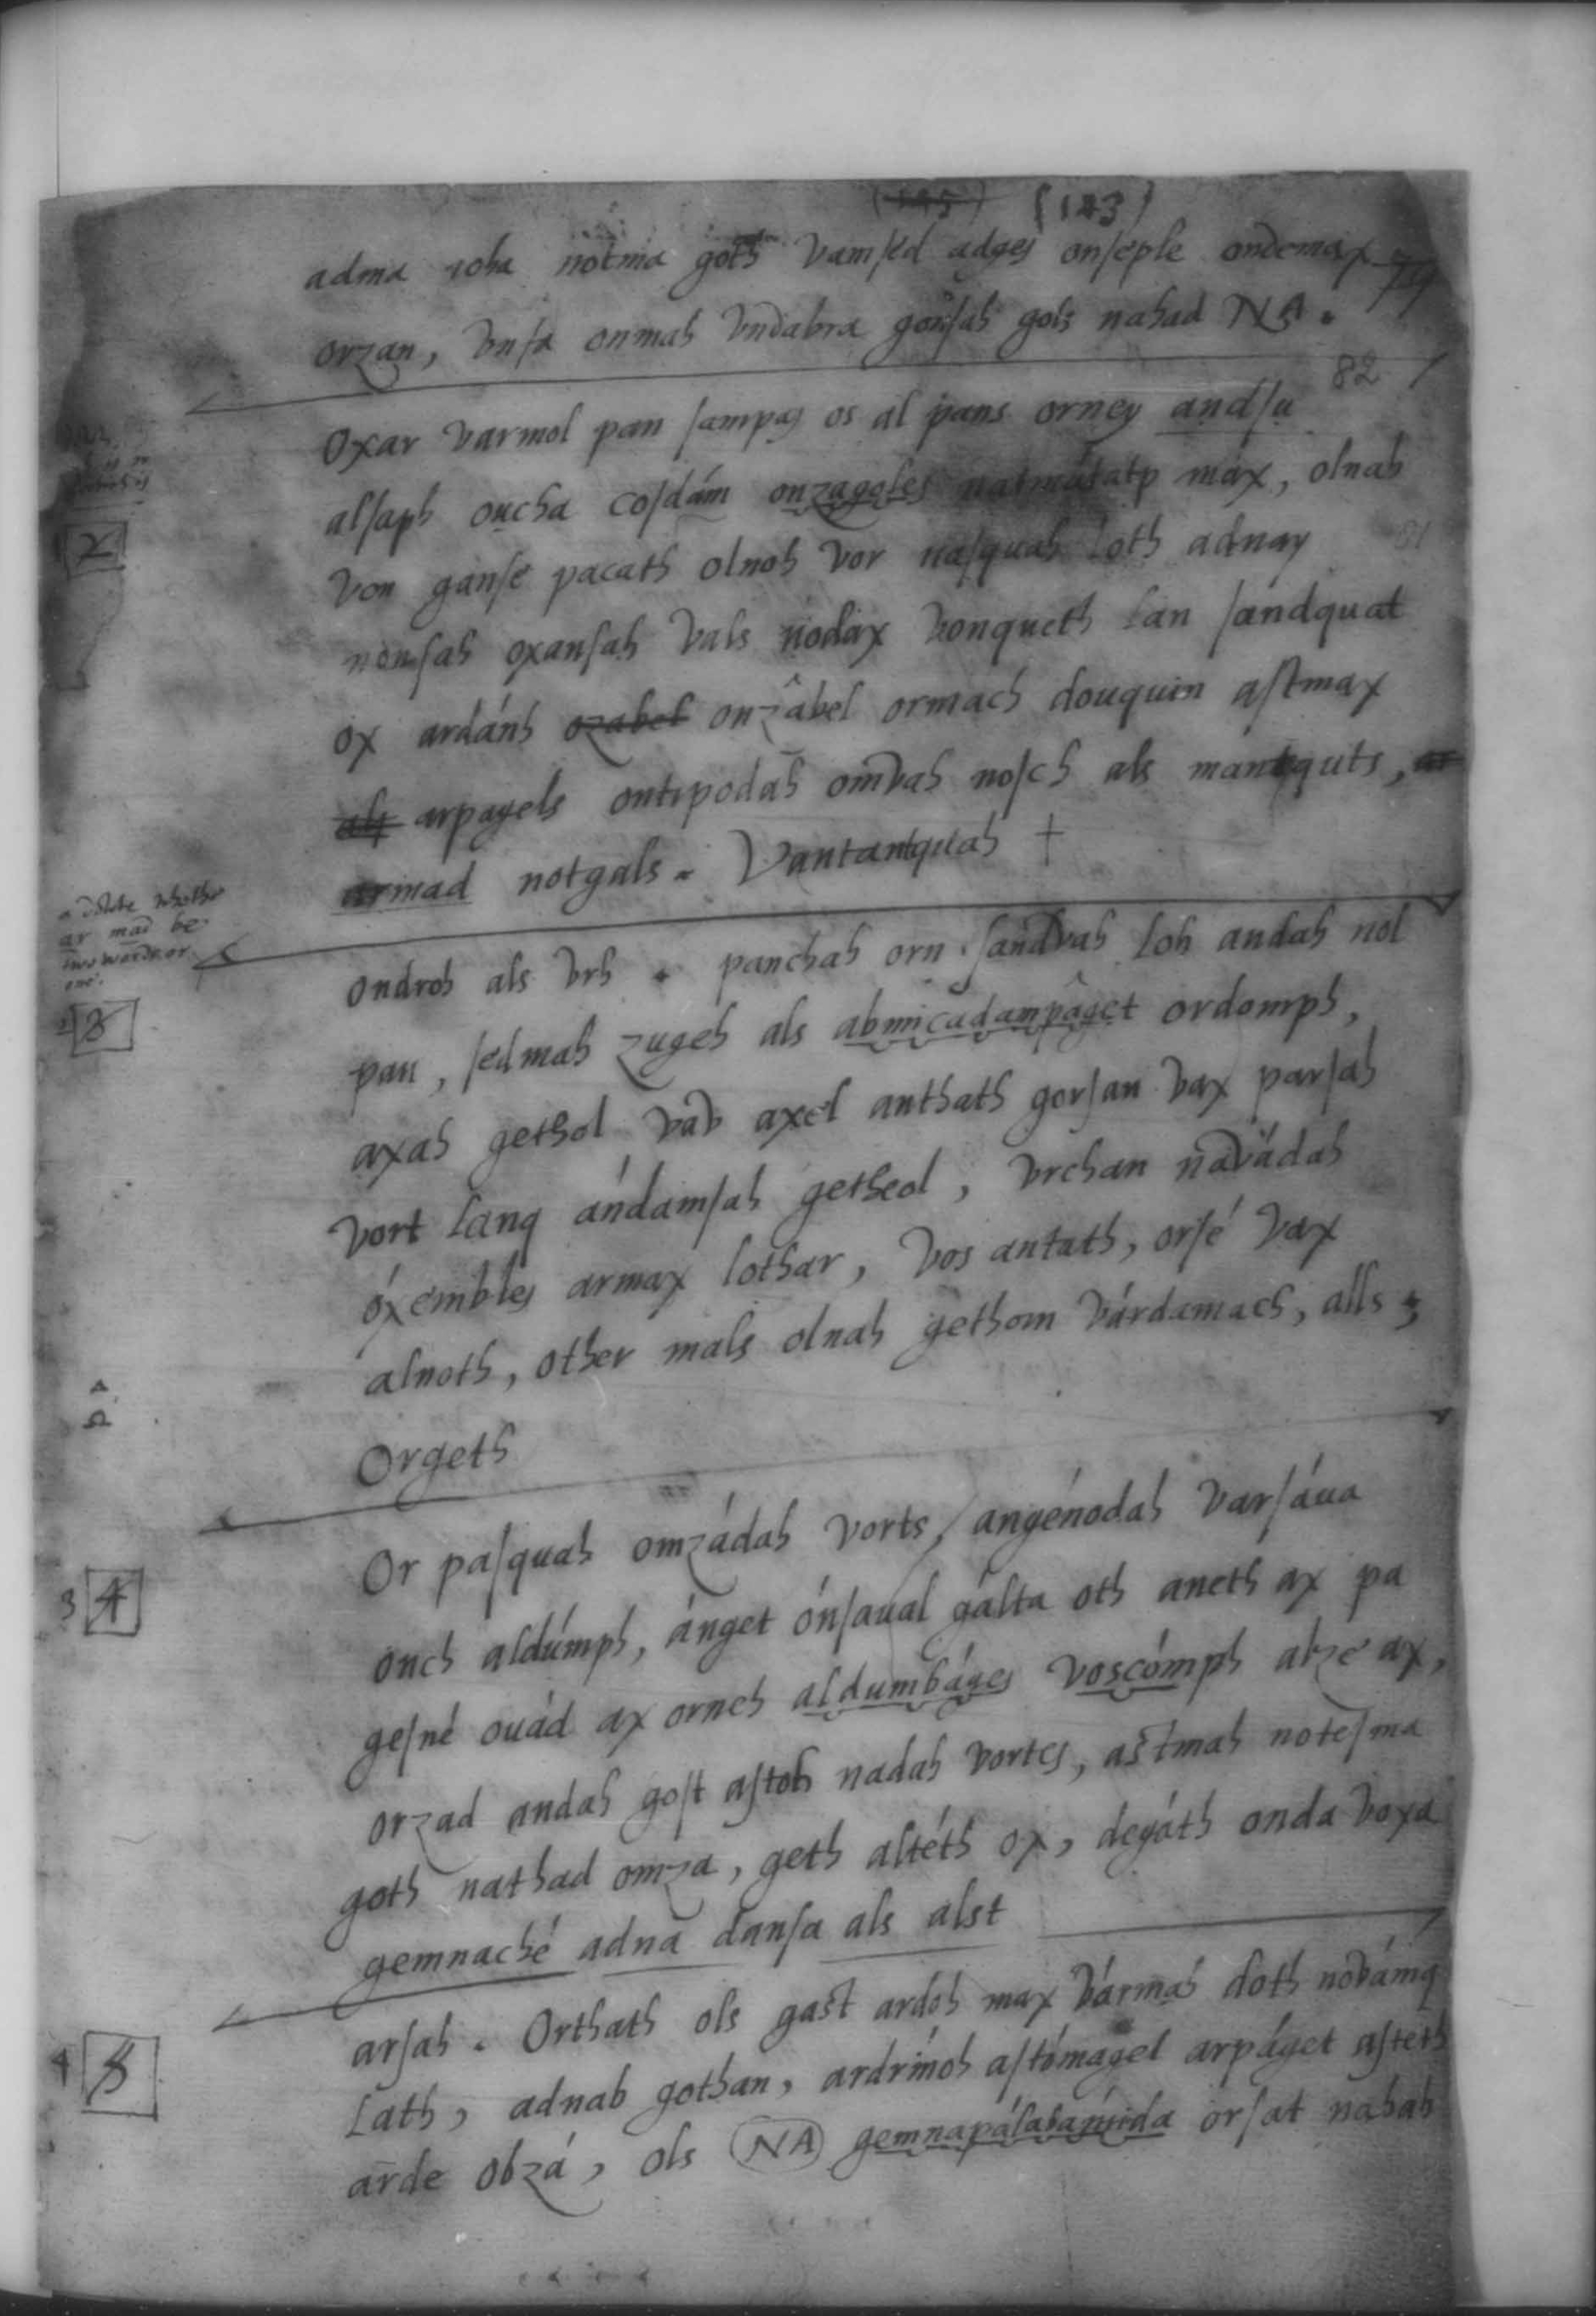 (123)
adma roha notma goth vamsed adges onseple ondemax
orzan, vnfa onmah vndabra gonsah gols nahad NA.
82
Oxar varmol pan sampas os al pans orney andsu
alsaph oucha cosdám onzagoles natmátatp max, olnah
von ganse pacath olnoh vor nasquah loth adnay
81
nonsah oxansah vals nodax vonqueth lan sandquat
ox ardánh ozabel onzâbel ormach douquin astmax
als arpagels ontipodah omvah nosch als mantquts, ar
armad notgals. Vantantquah +
a dowte whether
ar mad be
two words or
one.
ondroh als vrh . panchah orn sandvah loh andah nol
pan, sedmah zugeh als abmicadampâget ordomph,
axah gethol vav axel anthath gorsan vax parsah
vort lanq ándamsah getheol, vrchan navádah
óxembles armax lothar, vos antath, orsé vax
alnoth, other mals olnah gethom várdamach, alls
Orgeth
Or pasquah omzádah vorts, angénodah varsáua
3 4
onch aldúmph, ánget ónsaual gálta oth aneth ax pa
gesné ouád ax orneh aldumbáges voscómph alze ax,
orzad andah gost astoh nadah vortes, astmah notesma
goth nathad omza, geth altéth ox, degáth onda voxa
gemnaché adna dansa als alst
arsah. Orthath ols gast ardoh max vármah doth novámq
4 5
lath, adnab gothan, ardrinoh astómagel arpáget asteth
arde obzá, ols NA gemnapálabamida orsat nahah